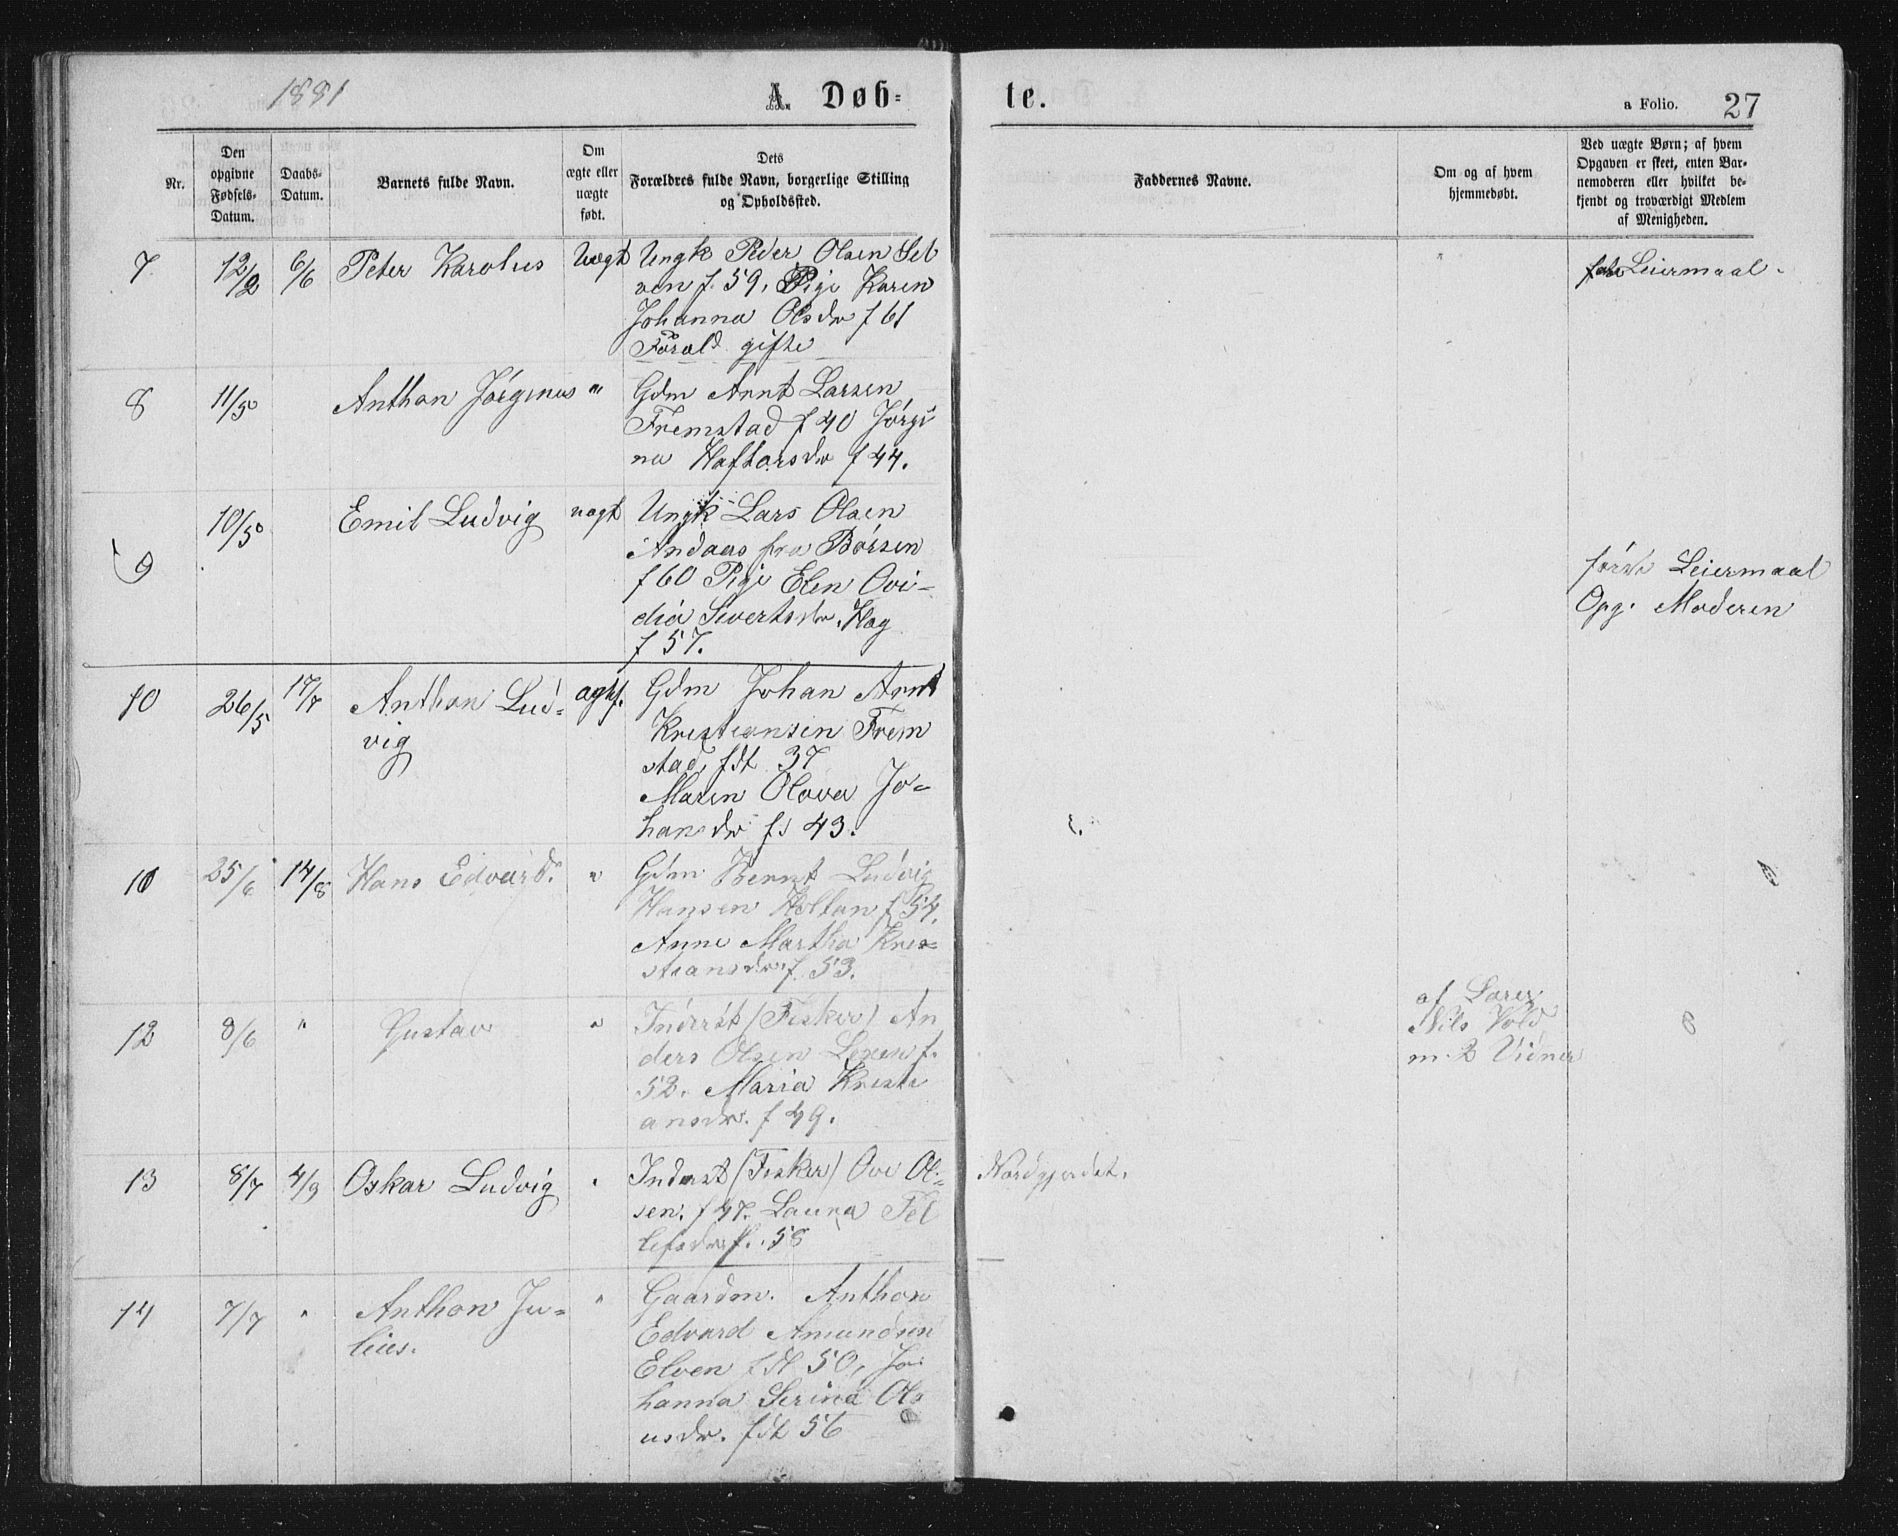 1881
A. Døb-
te.
a Folio. 27
Nr.
Den opgivne Fødsels-Datum.
Daabs-Datum.
Barnets fulde Navn.
Om ægte eller uægte født.
Dets Forældres fulde Navn, borgerlige Stilling og Opholdsted.
Faddernes Navne.
Om og af hvem hjemmedøbt.
Ved uægte Børn; af hvem Opgaven er skeet, enten Barnemoderen eller hvilket bekjendt og troværdigt Medlem af Menigheden.
7 12/2 6/6 Peter Karolus Uægt Ungk Peder Olsen Sel
ven f. 59, Pige Karen
Johanna Olsdr f 61
Foræld gifte
Leiermaal.
8 11/5 Anthon Jørginus " Gdm Arnt Larsen
Fremstad f 40 Jørgi
na Haftorsdr f 44.
9 10/5 Emil Ludvig uægt Ungk Lars Olsen
Andaas fra Børsen
f 60 Pige Elen Ovi-
dia Sivertsdr. Hag
f 57.
første Leiermaal
Opg. Moderen
10 26/5 17/7 Anthon Lud-
vig
ægtf. Gdm Johan Arnt
Kristiansen Frem
stad, fdt 37
Maren Olava Jo-
hansdr f. 43.
25/6 14/8 Hans Edvard. " Gdm Bernt Ludvig
Hansen Holtan f 54.
Anne Martha Kris-
tiansdr. f. 53.
12 8/6 " Gustav " Inderst (Fisker) An
ders Olsen f.
52. Maria Kristi
ansdr. f 49.
af Lærer
Nils Vold
m. 2 Vidner
13 8/7 4/9 Oskar Ludvig " Inderst (Fisker) Ove Ol-
sen. f 47. Laura
f. 58
14 7/7 " Anthon Ju-
lius.
" Gaardm. Anthon
Edvard Amundsen
Elven fdt 50, Jo
hanna Serina Ol
usdr. fdt 56